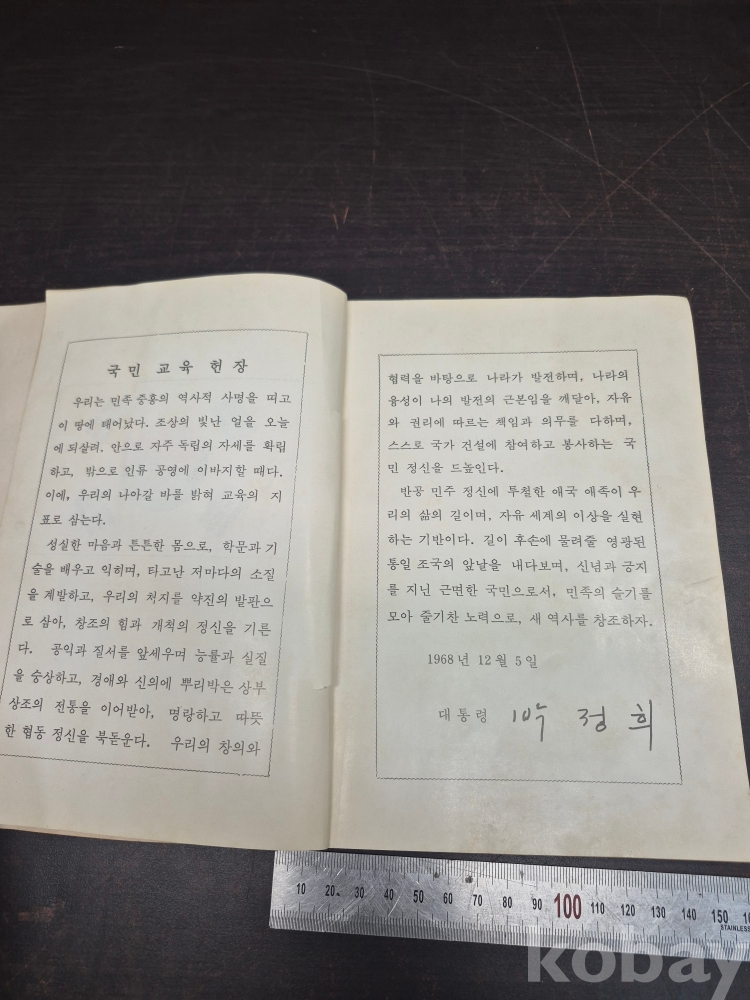 국민 교육 헌장
우리는 민족 중흥의 역사적 사명을 띠고
이 땅에 태어났다. 조상의 빛난 얼을 오늘
에 되살려, 안으로 자주 독립의 자세를 확립
하고, 밖으로 인류 공영에 이바지할 때다.
이에, 우리의 나아갈 바를 밝혀 교육의 지
표로 삼는다.
성실한 마음과 튼튼한 몸으로, 학문과 기
술을 배우고 익히며, 타고난 저마다의 소질
을 계발하고, 우리의 처지를 약진의 발판으
로 삼아, 창조의 힘과 개척의 정신을 기른
다. 공익과 질서를 앞세우며 능률과 실질
을 숭상하고, 경애와 신의에 뿌리박은 상부
상조의 전통을 이어받아, 명랑하고 따뜻
한 협동 정신을 북돋운다. 우리의 창의와
협력을 바탕으로 나라가 발전하며, 나라의
융성이 나의 발전의 근본임을 깨달아, 자유
와 권리에 따르는 책임과 의무를 다하며,
스스로 국가 건설에 참여하고 봉사하는 국
민 정신을 드높인다.
반공 민주 정신에 투철한 애국 애족이 우
리의 삶의 길이며, 자유 세계의 이상을 실현
하는 기반이다. 길이 후손에 물려줄 영광된
통일 조국의 앞날을 내다보며, 신념과 긍지
를 지닌 근면한 국민으로서, 민족의 슬기를
모아 줄기찬 노력으로, 새 역사를 창조하자.
1968년 12월 5일
대통령 박정희
10 20 30 40 50 60 70 80 90 100 110 120 130 140 150 16
STAINLESS
kobay